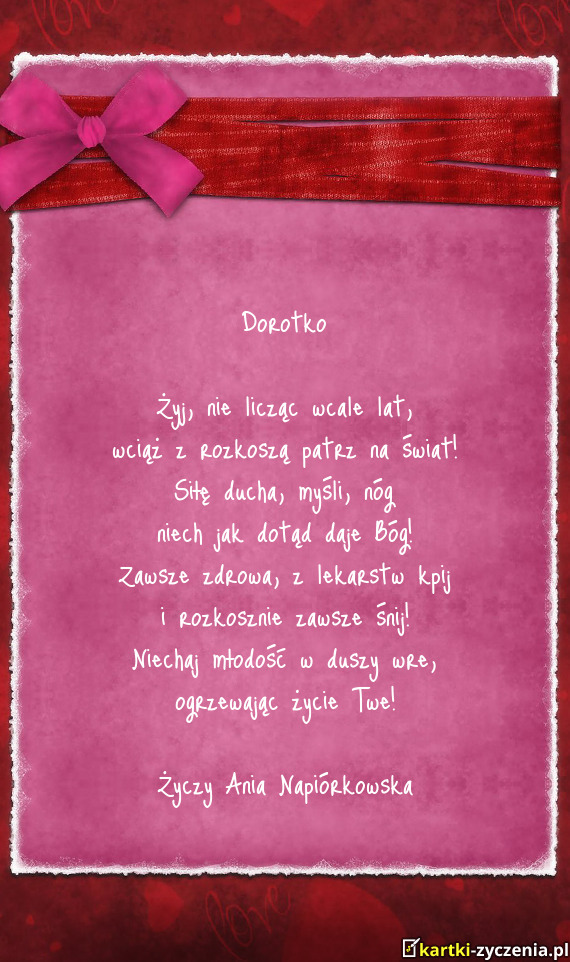 love
love
Dorotko
Żyj, nie licząc wcale lat,
wciąż z rozkoszą patrz na świat!
Siłę ducha, myśli, nóg
niech jak dotąd daje Bóg!
Zawsze zdrowa, z lekarstw kpij
i rozkosznie zawsze śnij!
Niechaj młodość w duszy wre,
ogrzewając życie Twe!
Życzy Ania Napiórkowska
love
kartki-zyczenia.pl